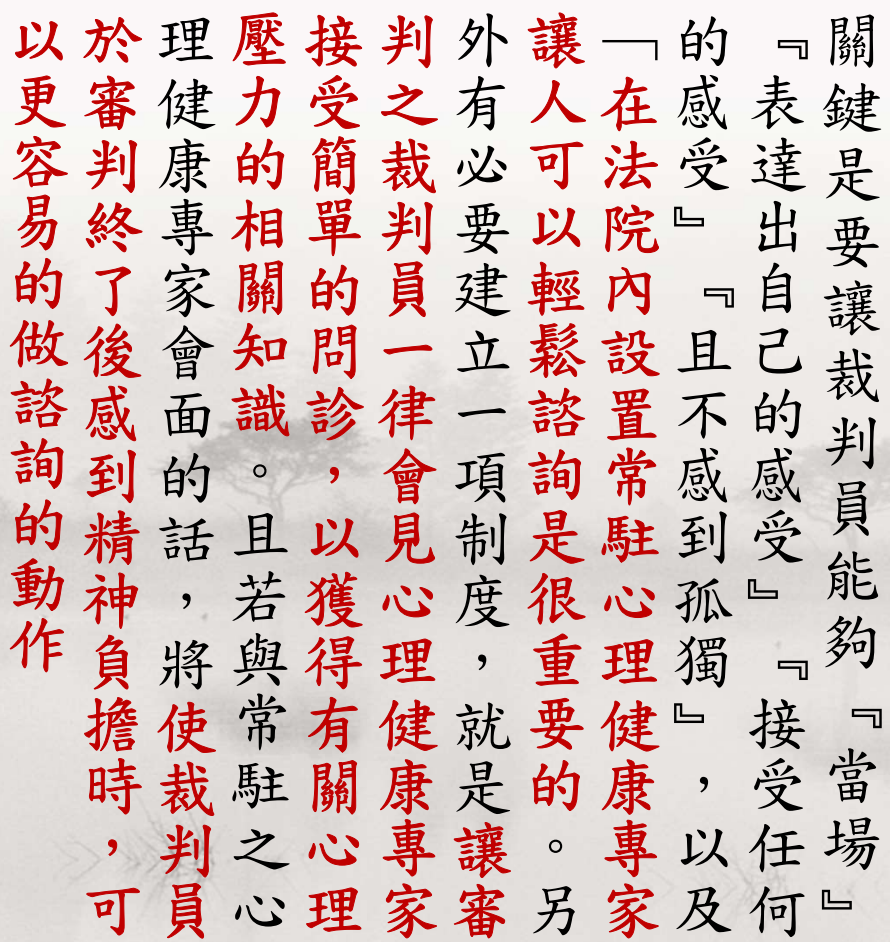 關鍵是要讓裁判員能夠『當場』
『表達出自己的感受』『接受任何
的感受』『且不感到孤獨』，以及
「在法院內設置常駐心理健康專家
讓人可以輕鬆諮詢是很重要的。另
外有必要建立一項制度，就是讓審
判之裁判員一律會見心理健康專家
接受簡單的問診，以獲得有關心理
壓力的相關知識。且若與常駐之心
理健康專家會面的話，將使裁判員
於審判終了後感到精神負擔時，可
以更容易的做諮詢的動作